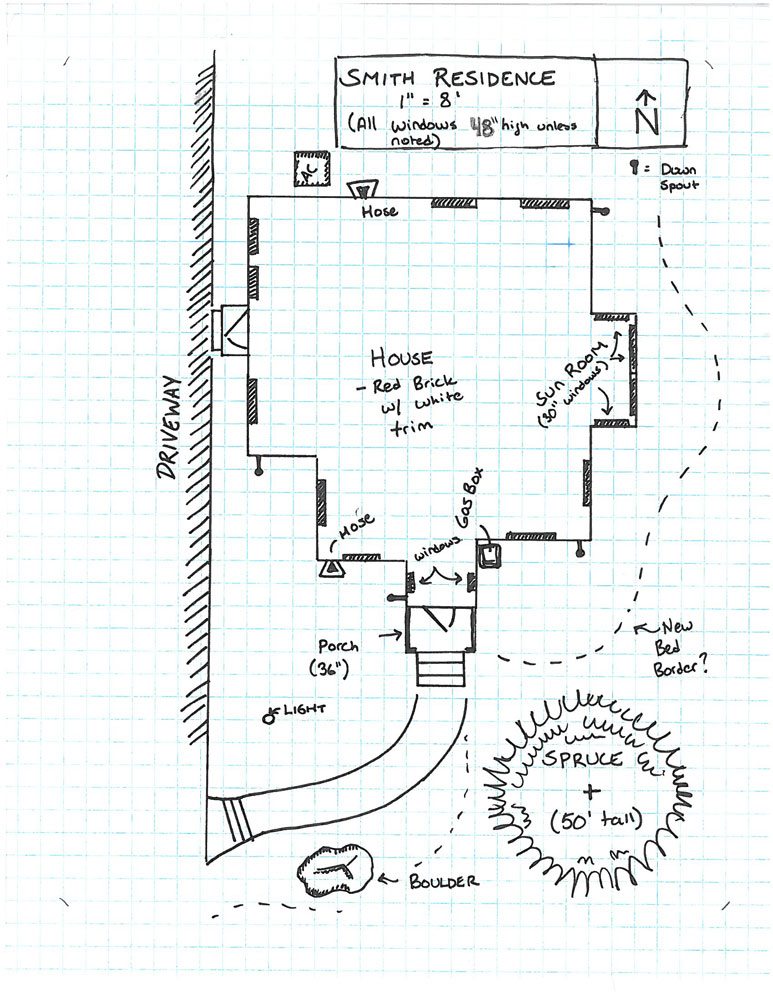 SMITH RESIDENCE
1" = 8'
(All windows 48" high unless
noted)
N
= Down
Spout
AC
Hose
HOUSE
- Red Brick
w/ white
trim
SUN ROOM
(30" windows)
DRIVEWAY
HOSE
windows
GAS BOX
Porch
(36")
New
Bed
Border?
LIGHT
SPRUCE
+
(50' tall)
BOULDER